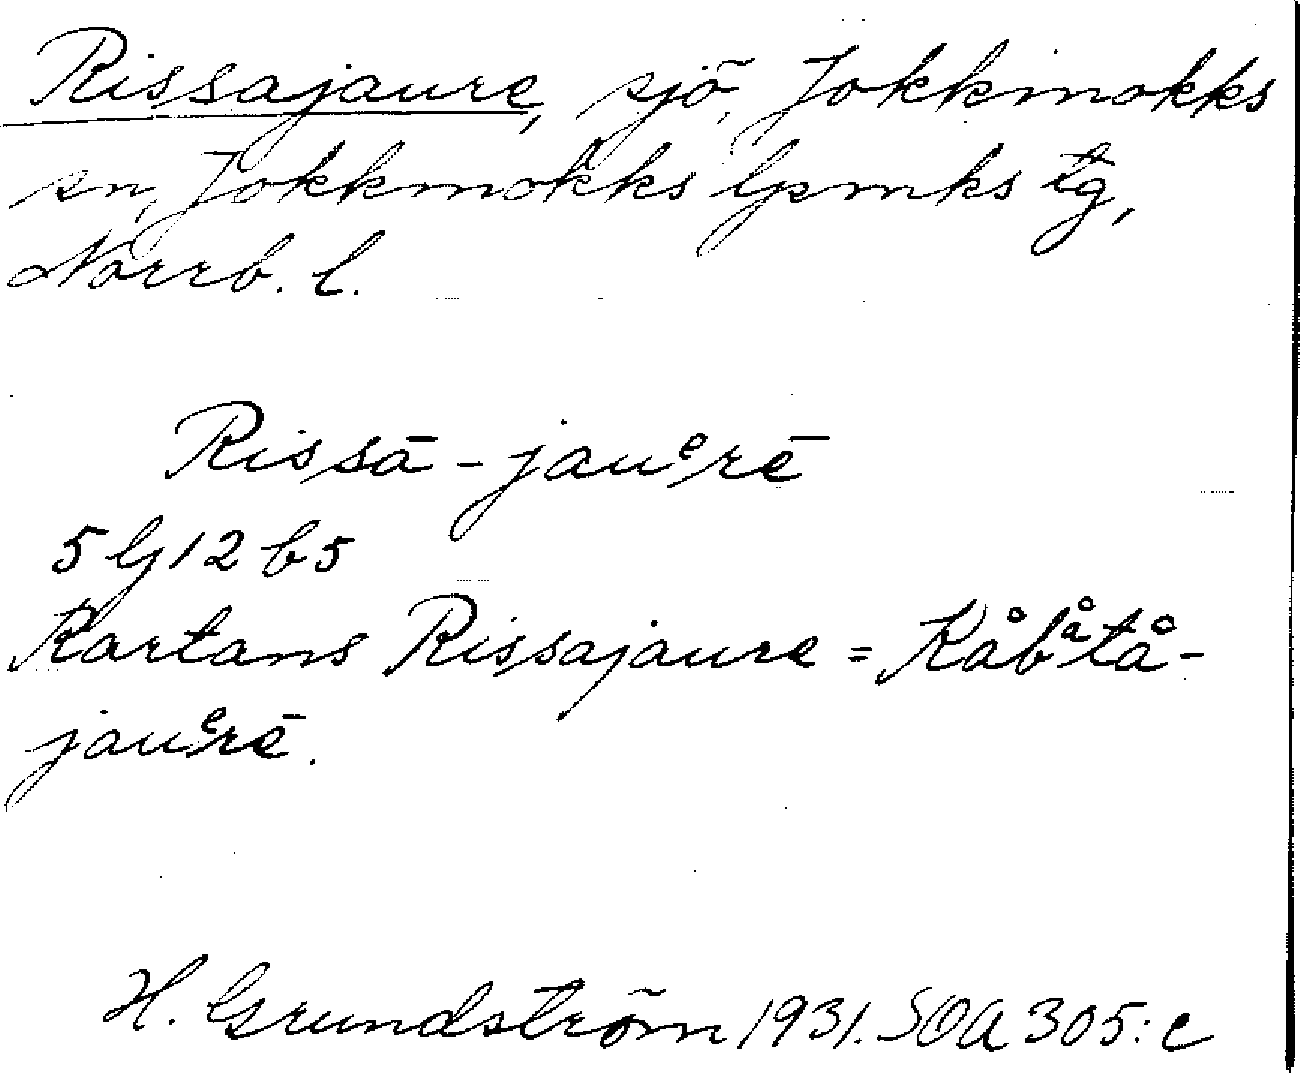 Rissajaure, sjö, Jokkmokks
sn, Jokkmokks lpmks tg,
Norrb. l.
Rissā-jauᵉrē
5 G 12 b 5
Kartans Rissajaure = Kåbᵃ̊tå-
jauᵉrē.
H. Grundström 1931. SOA 305:c